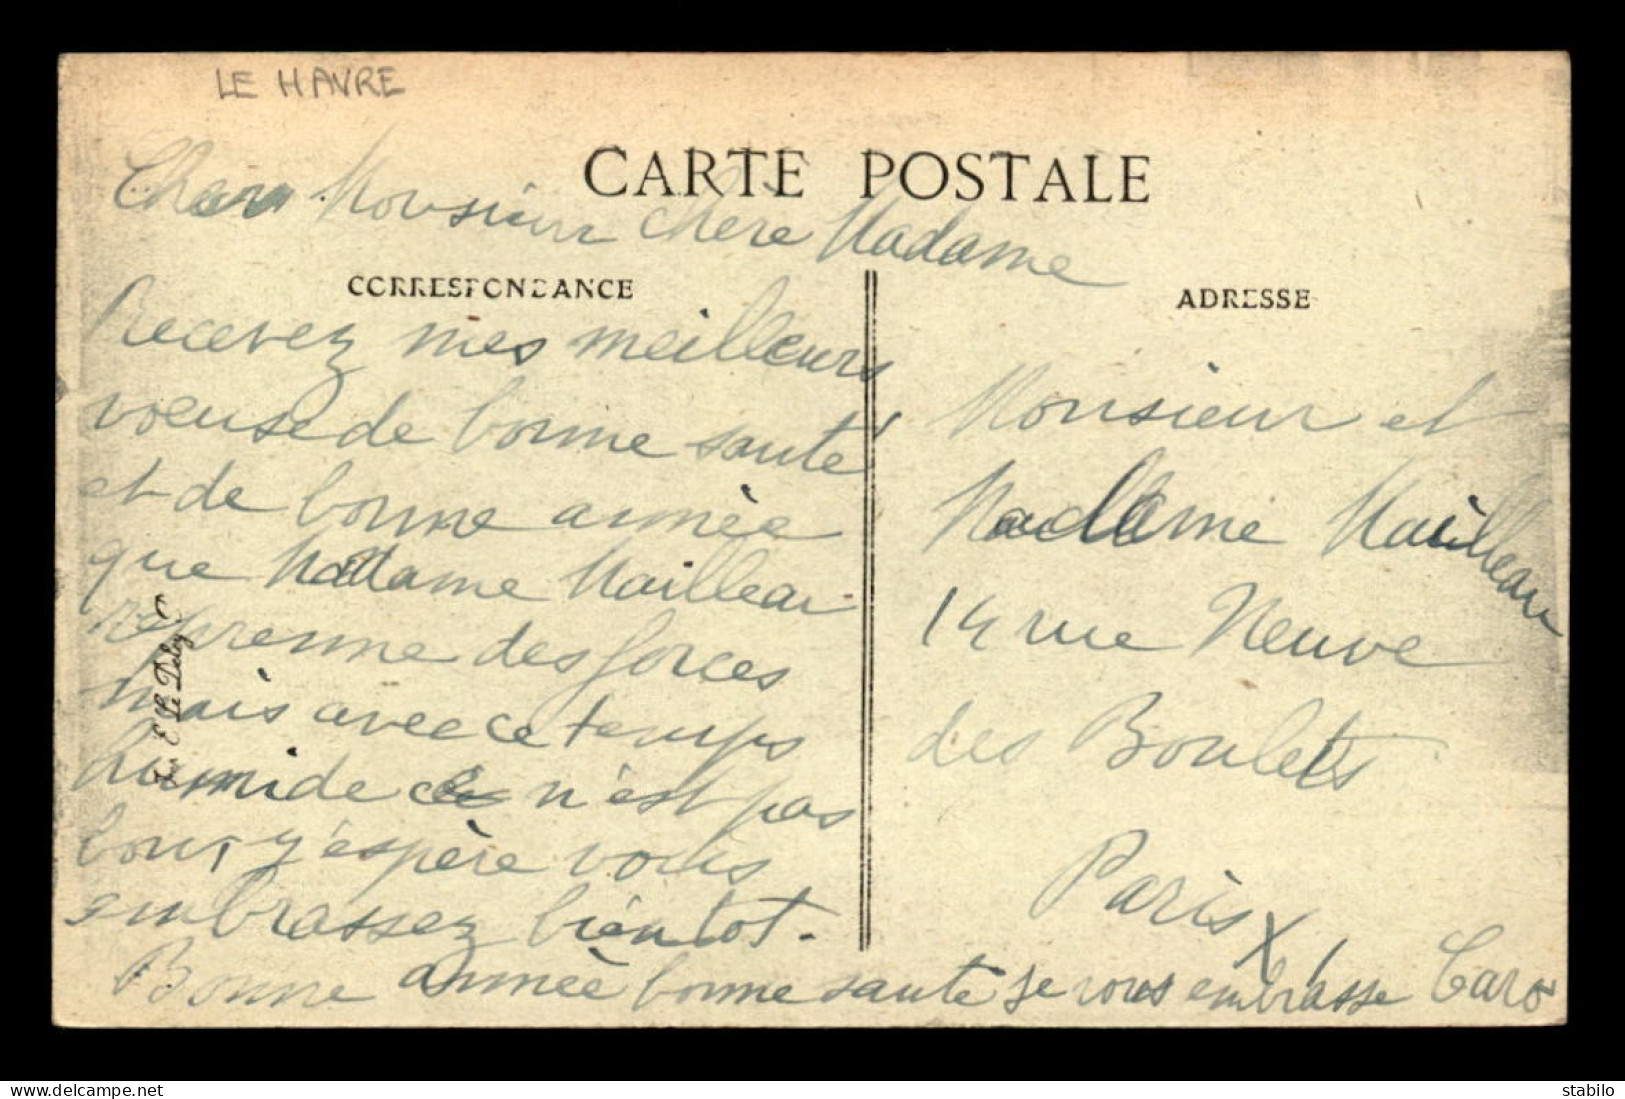 LE HAVRE
CARTE POSTALE
Cher Monsieur chère Madame
CORRESPONDANCE
Recevez mes meilleurs
voeuse de bonne santé
et de bonne année
que Madame Mailleau
reprenne des forces
mais avec ce temps
humide ce n'est pas
bon, j'espère vous
embrassez bientot.
Bonne année bonne santé je vous embrasse Caro
ADRESSE
Monsieur et
Madame Mailleau
14 rue Neuve
des Boulets
Paris X
E Le Deley
stabilo